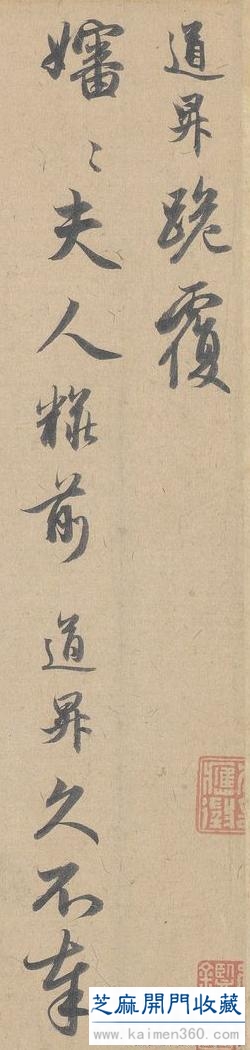 道昇跪覆
嬸〻夫人粧前道昇久不奉
芝麻開門收藏
www.kaimen360.com